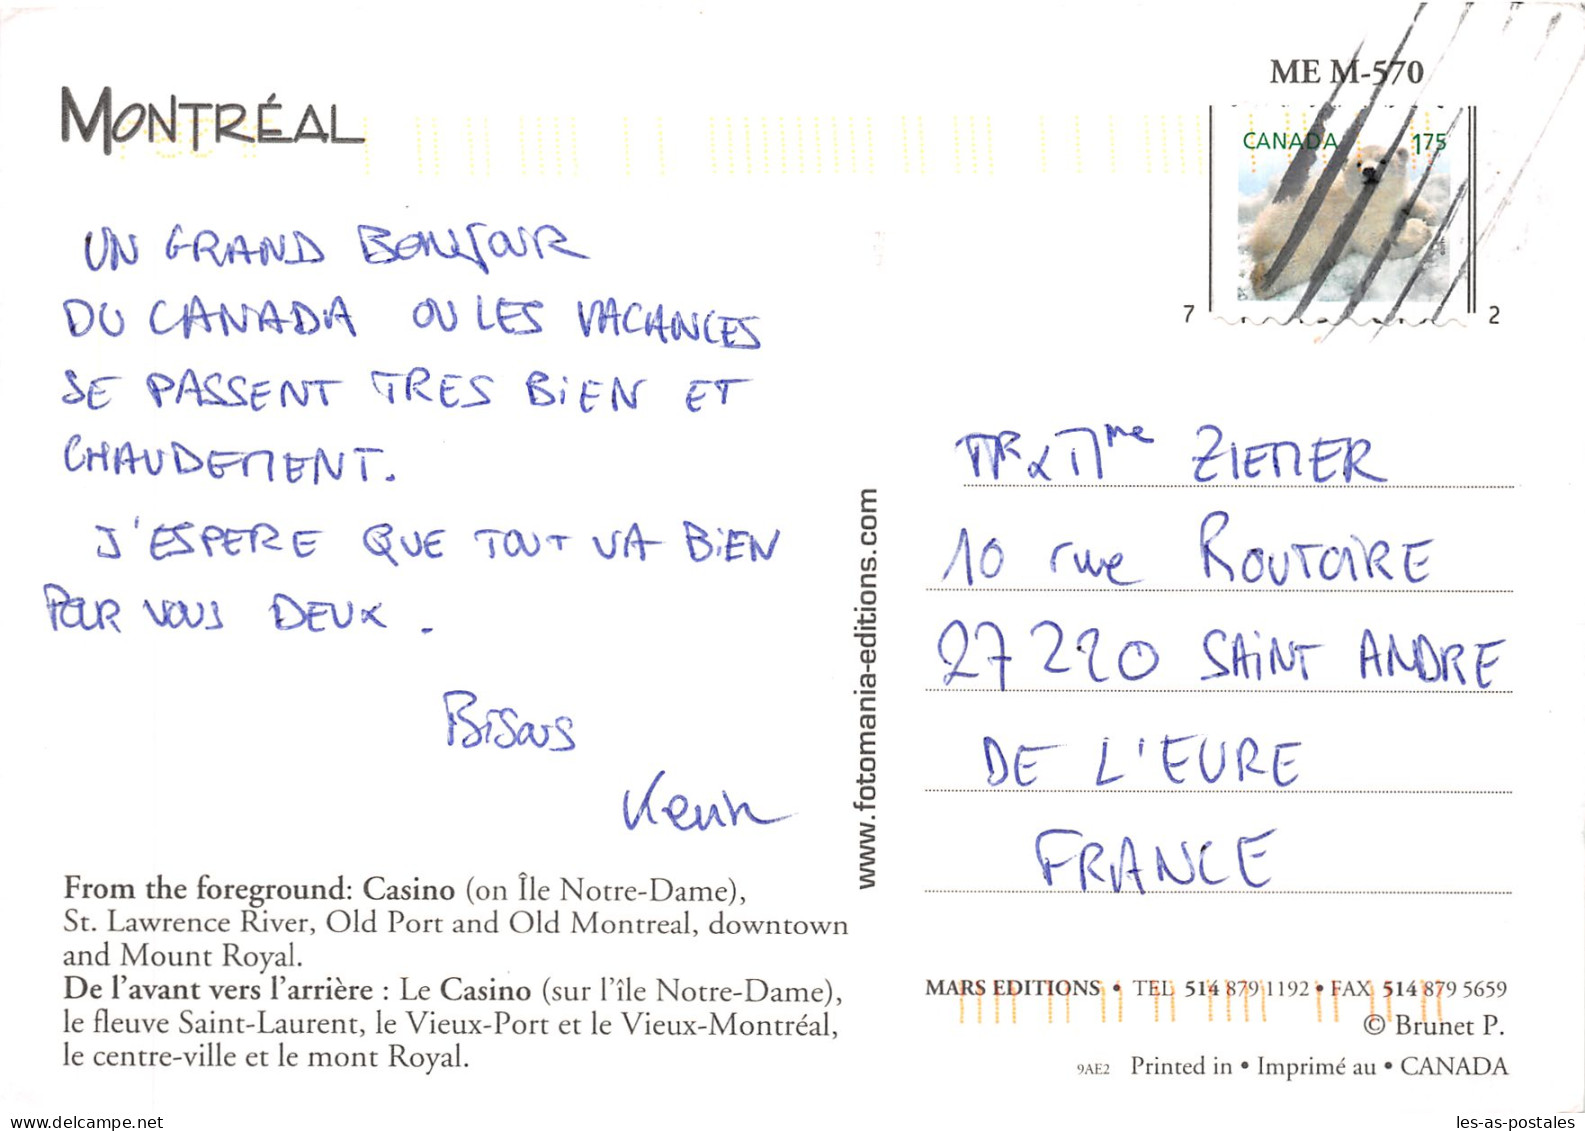 MONTRÉAL
ME M-570
CANADA 1.75
7 2
UN GRAND BONJOUR
DU CANADA OU LES VACANCES
SE PASSENT TRES BIEN ET
CHAUDEMENT.
J'ESPERE QUE TOUT VA BIEN
POUR VOUS DEUX.
BISOUS
From the foreground: Casino (on Île Notre-Dame),
St. Lawrence River, Old Port and Old Montreal, downtown
and Mount Royal.
De l'avant vers l'arrière : Le Casino (sur l'île Notre-Dame),
le fleuve Saint-Laurent, le Vieux-Port et le Vieux-Montréal,
le centre-ville et le mont Royal.
www.fotomania-editions.com
MR & Mme ZIEMER
10 rue ROUTOIRE
27220 SAINT ANDRE
DE L'EURE
FRANCE
MARS EDITIONS • TEL 514 879 1192 • FAX 514 879 5659
© Brunet P.
9AE2 Printed in • Imprimé au • CANADA
www.delcampe.net
les-as-postales